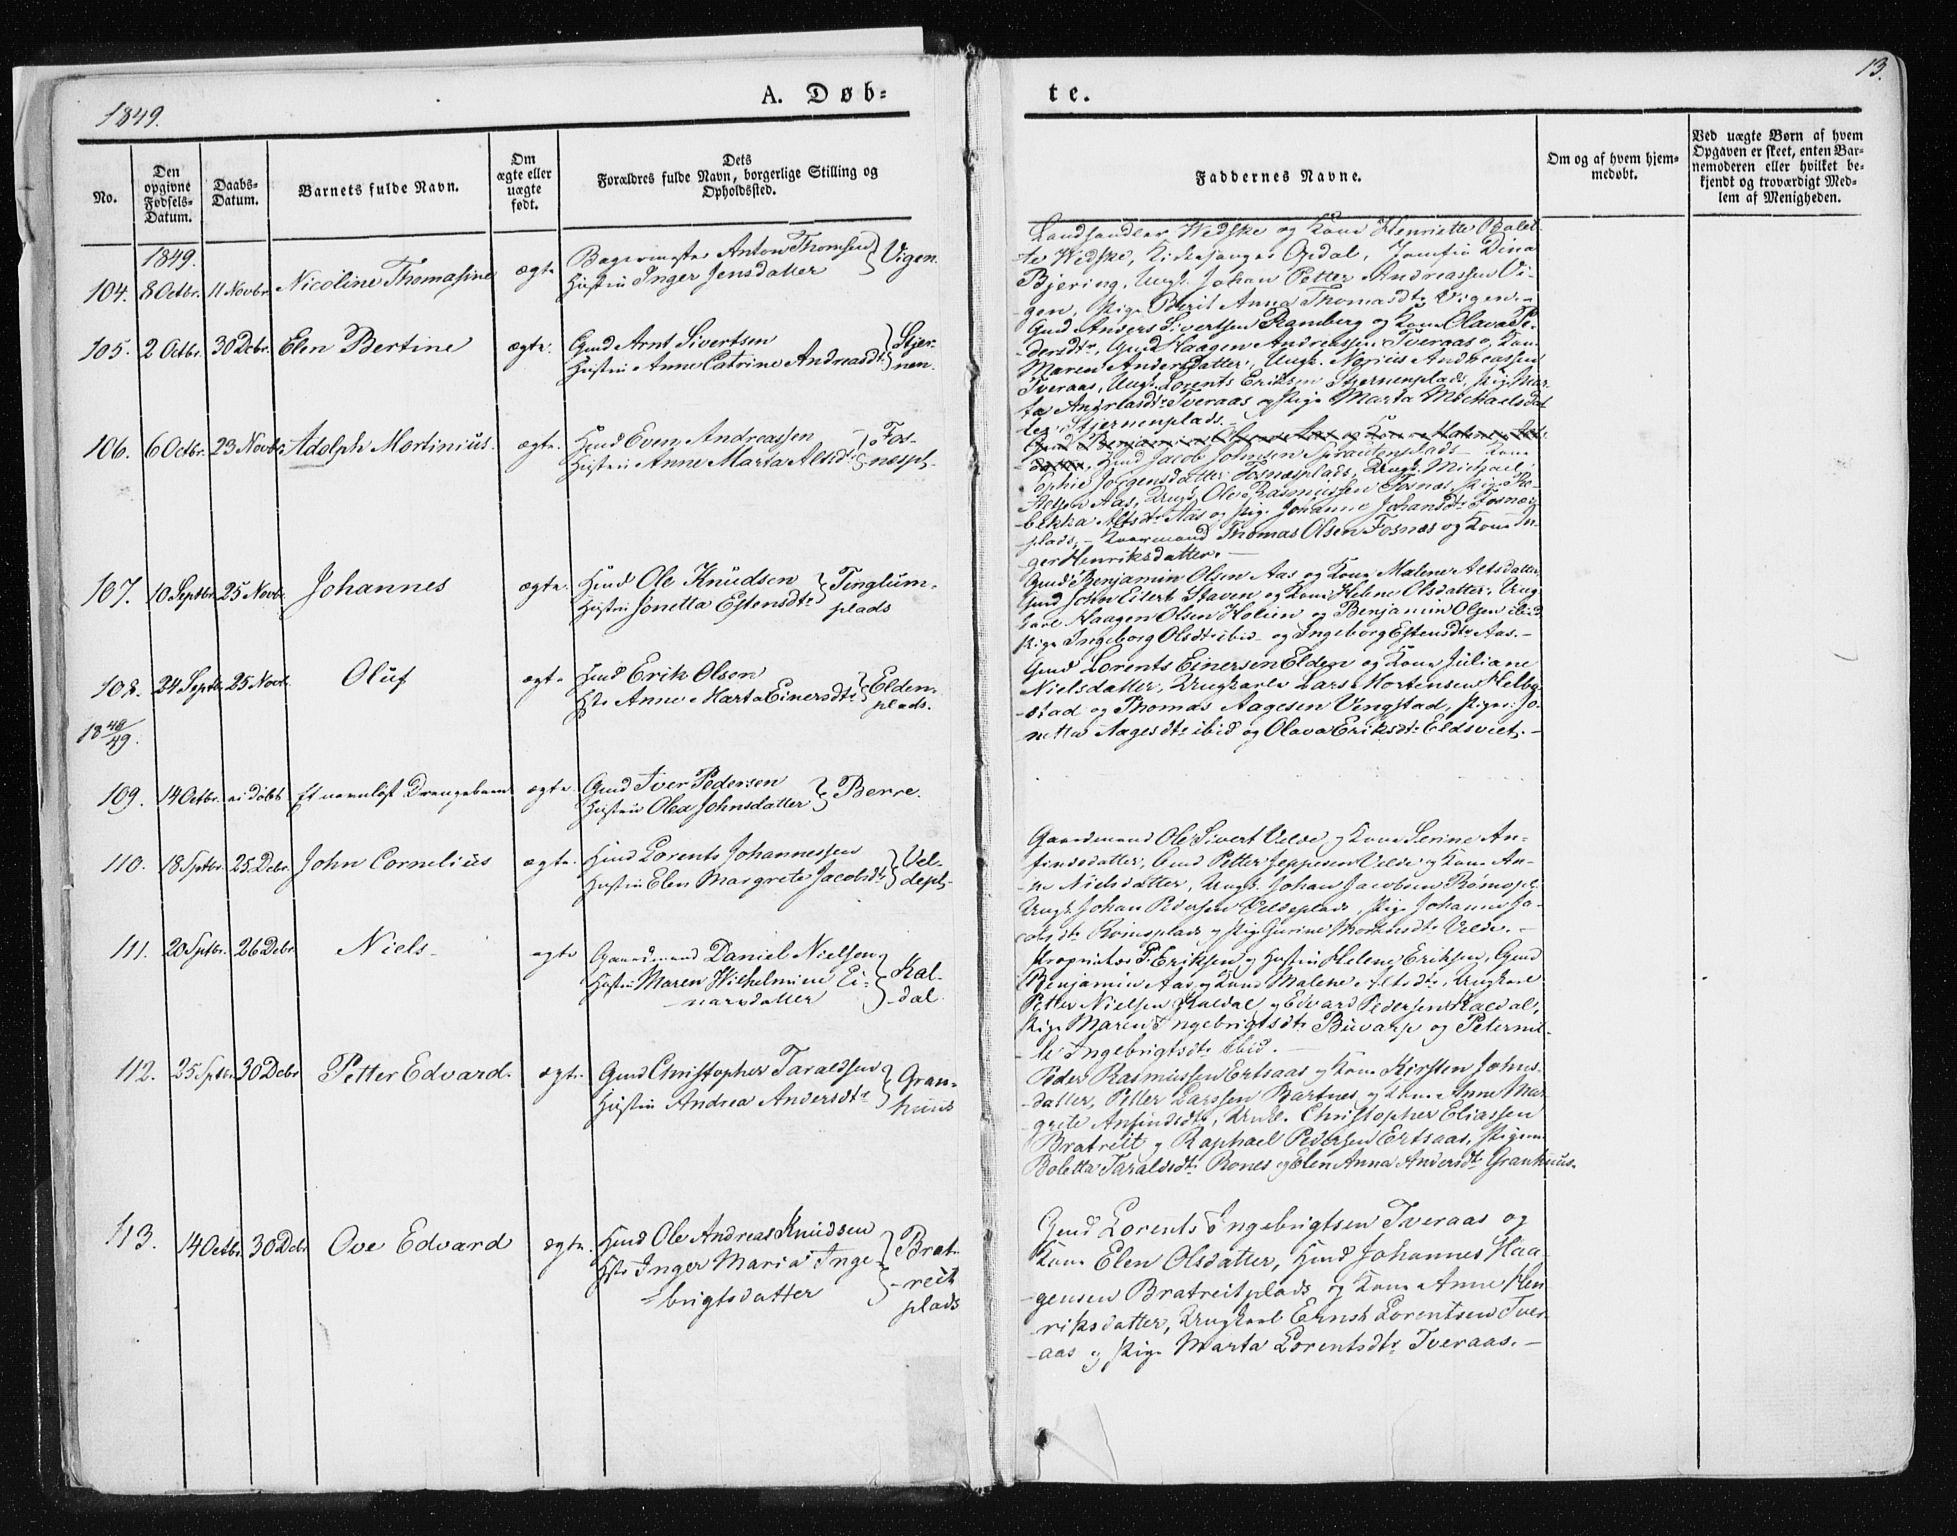 1849.
A. Døb=
te.
13.
No.
Den opgivne Fødsels-Datum.
Daabs-Datum.
Barnets fulde Navn.
Om ægte eller uægte født.
Dets Forældres fulde Navn, borgerlige Stilling og Opholdssted.
Faddernes Navne.
Om og af hvem hjem-
medøbt.
Ved uægte Børn af hvem
Opgaven er skeet, enten Bar-
nemoderen eller hvilket be-
kjendt og troværdigt Med-
lem af Menigheden.
1849.
104. 8 Octbr. 11 Novbr. Nicoline Thomasine ægte Anton Thomsen
Hustru Inger Jensdatter } Vigen.
Landhandler Widske og Kone Henriette Bolet-
te Widske, Kirkesanger Opdal, Jomfru Dina
Bjering, Ungk. Johan Petter Andreassen Vi-
gen, Pige Berit Anna Thomasdtr Vigen.-
105. 2 Octbr. 30 Debr. Elen Bertine ægte. Gmd Arnt Sivertsen
Hustru Anne Catrine Andreasdtr } Stjer-
nen.
Gmd Anders Sivertsen Ramberg og Kone Olava Pe-
dersdtr, Gmd Haagen Andreassen Tveraas og Kone
Maren Andersdatter, Ungk. Norius Andreassen
Tveraas, Ungk. Lorents Eriksen Stjernenplads, Pig. Mar-
ta Andreasdtr Tveraas og Pige Marta Michaelsdat-
ter Stjernenplads.-
106. 6 Octbr. 23 Novbr. Adolph Martinius. ægte. Hmd Even Andreassen
Hustru Anne Marta Altsdtr } Fos-
næspl.
Hmd Jacob Johnsen Spraudenplads - Kone
Sophie Jørgensdatter Fosnæsplads, Ungk. Michael
Aas, Ungk. Ole Rasmussen Fosnæs, Pige Re-
bekka Altsdtr Aas og Pige Johanne Johansdtr Fosnæs-
plads, - Kaarmand Thomas Olsen Fosnæs og Kone In-
ger Henriksdatter.-
107. 10 Septbr. 25 Novbr. Johannes ægte. Hmd Ole Knudsen
Hustru Jonetta Estensdtr } Tinglum-
plads
Gmd Benjamin Olsen Aas og Kone Malene Altsdatter,
Gmd John Eilert Staven og Kone Helene Olsdatter, Ung-
karl Haagen Olsen Holien og Benjamin Olsen ibid
Pige Ingeborg Olsdtr ibid og Ingeborg Estensdtr Aas.-
108. 24 Septbr. 25 Novbr. Oluf ægte Hmd Erik Olsen
Hst. Anne Marta Einersdtr } Elden-
plads.
Gmd Lorents Einersen Elden og Kone Juliane
Nielsdatter, Ungkarle Lars Mortensen Helbg-
stad og Thomas Aagesen Vengstad, Piger: Jo-
netta Aagesdtr ibid og Olava Eriksdtr Eldsviet.-
18 48/49.
109. 14 Octbr. ei døbt Et navnløst Drengebarn ægte. Gmd Iver Pedersen
Hustru Olea Johnsdatter } Berre.
110. 18 Sptbr. 25 Debr. John Cornelius ægte. Hmd Lorents Johannessen
Hustru Elen Margrete Jacobsdtr } Vel-
depl.
Gaardmand Ole Sivert Velde og Kone Serine An-
findsdatter, Gmd Petter Jeppesen Velde og Kone An-
ne Nielsdatter, Ungk. Johan Jacobsen Rømopl.
Ungk. Johan Pedersen Veldeplads, Pige Johanna Ja-
cobsdtr Romoplads og Pig. Gurine Velde.-
111. 20 Sptbr. 26 Debr. Niels- ægte Gaardmand Daniel Nielsen
Hustru Maren Wilhelmine Ei-
narsdatter } Kal-
dal.
Proprietær P. Eriksen og Hustru Helene Eriksen, Gmd
Benjamin Aas og Kone Malene Altsdtr, Ungkarl
Petter Nielsen Kaldal og Edvard Pedersen Kaldal,
Pige Maren Ingebrigtsdtr Buvarp og Peternil-
le Ingebrigtsdtr ibid.-
112. 25 Sptbr. 30 Debr Petter Edvard. ægte. Gmd Christopher Taraldsen
Hustru Andrea Andersdtr } Gran-
huus
Peder Rasmussen Ertsaas og Kone Kirsten Johns-
datter, Petter Larssen Bartnes og Kone Anne Mar-
grete Anfindsdtr, Ungk. Christopher Eliassen
Bratreit og Raphael Pedersen Ertsaas, Pigerne
Boletta Taraldsdtr Rones og Elen Anna Andersdtr Granhuus.
113. 14 Octbr. 30 Debr Ove Edvard ægte. Hmd Ole Andreas Knudsen
Hst. Inger Maria Inge-
brigtsdatter } Brat-
reit
plads
Gmd Lorents Ingebrigtsen Tveraas og
Kone Elen Olsdatter, Hmd Johannes Haa-
gensen Bratreitplads og Kone Anne Hen-
riksdatter, Ungkarl Ernst Lorentsen Tver-
aas og Pige Marta Lorentsdtr Tveraas.-